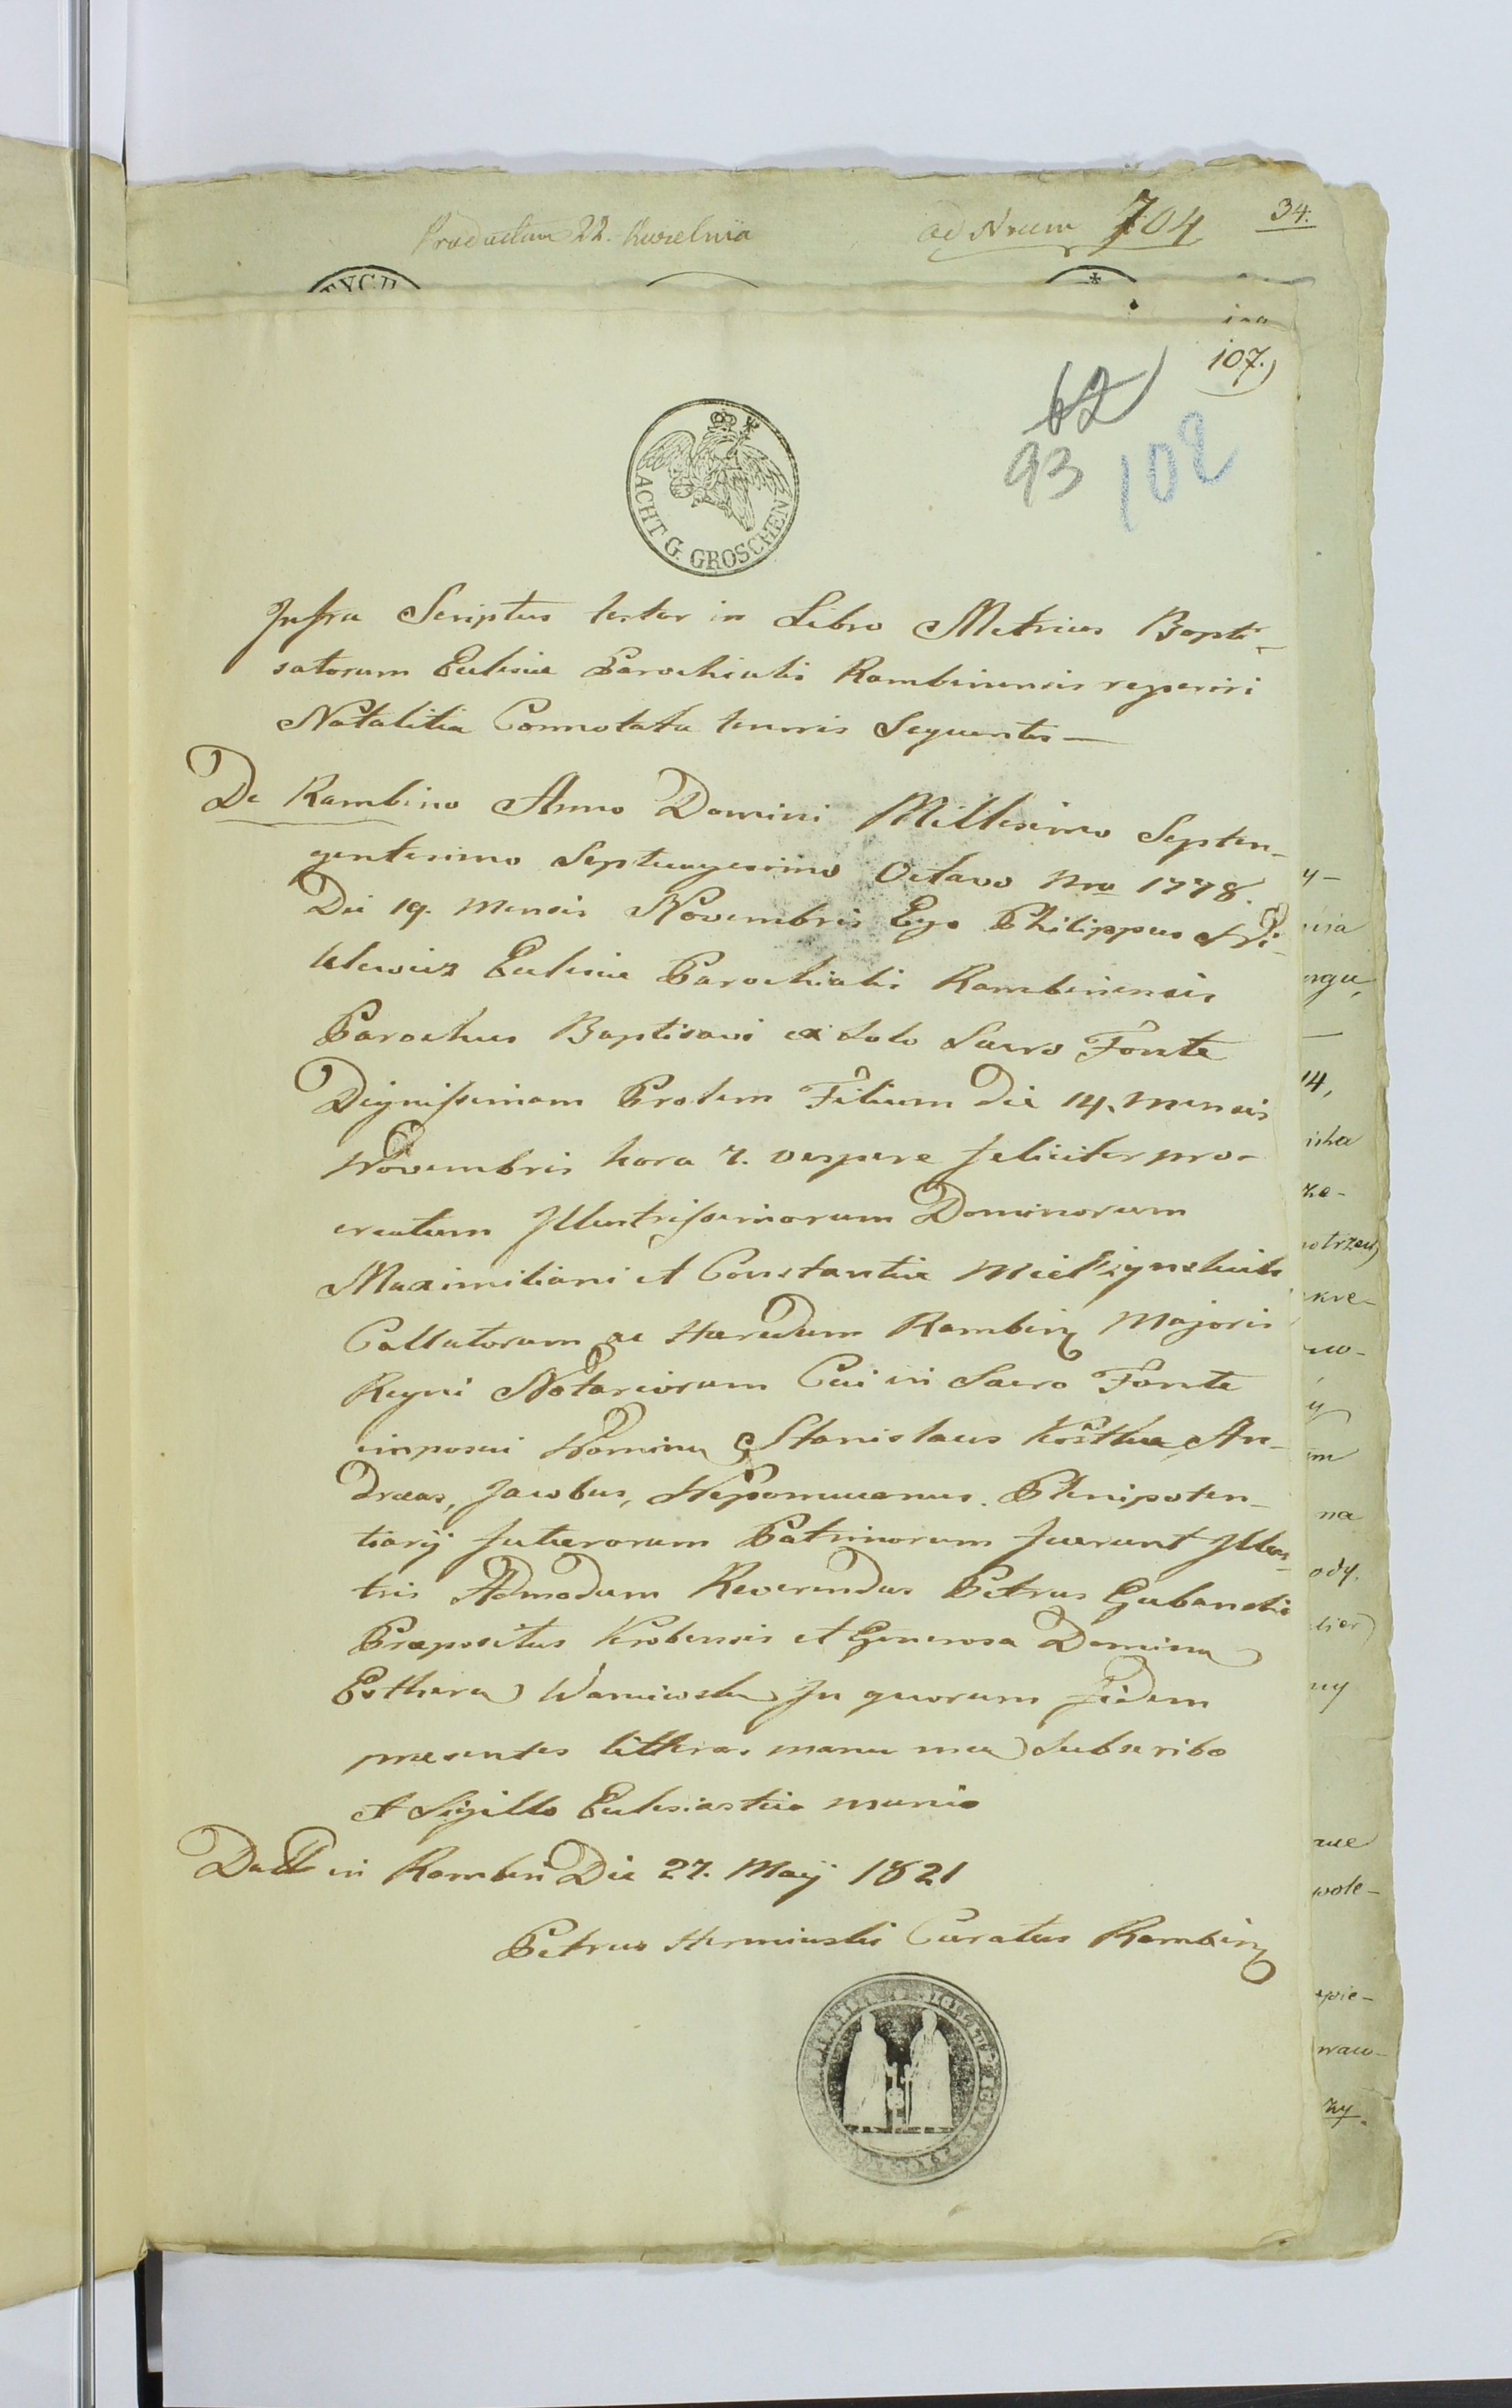 Productum 22. Kwietnia
ad Nrum 704
34.
107.)
62
93 102
ACHT G. GROSCHEN
Infra Scriptus testor in Libro Metrices Bapti-
satorum Eclesiae Parochialis Rambinensis reperiri
Natalitia Connotata tenoris Sequentis —
De Rambino Anno Domini Millesimo Septin-
gentesimo Septuagesimo Octavo Nro 1778.
Die 19. mensis Novembris Ego Philippus
Eclesiae Parochialis Rambinensis
Parochus Baptisavi ex Solo Sacro Fonte
Dignissimam Prolem Filium die 14. mensis
Novembris hora 7. vespere feliciter pro-
creatum Illustrissimorum Dominorum
Maximiliani et Constantiae Mielzynskich
Collatorum ac Haeredum Rambin Majoris
Regni Notariorum Cui in Sacro Fonte
imposui Nomina Stanislaus Kostka, An-
dreas, Jacobus, Nepomucenus. Plenipoten-
tiarij futurorum Patrinorum fuerunt Illus-
tris Admodum Reverendus Petrus Gubanski
Praepositus Krobensis et Generosa Domina
Esthera In quorum fidem
praesentes litteras manu mea Subscribo
et Sigillo Eclesiastico munio
Datt in Rambin Die 27. Maij 1821
Petrus Herminski Curatus Rambin